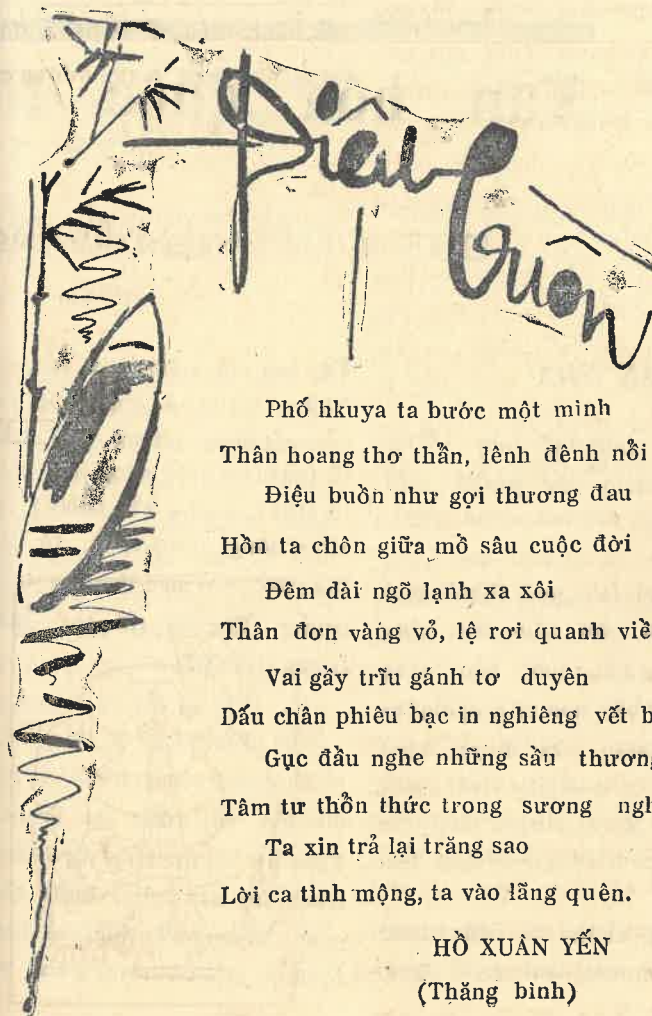 Điệu
buồn
Phố hkuya ta bước một mình
Thân hoang thơ thẩn, lênh đênh nỗi
Điệu buồn như gợi thương đau
Hồn ta chôn giữa mồ sâu cuộc đời
Đêm dài ngõ lạnh xa xôi
Thân đơn vàng võ, lệ rơi quanh
Vai gầy trĩu gánh tơ duyên
Dấu chân phiêu bạc in nghiêng vết
Gục đầu nghe những sầu thương
Tâm tư thổn thức trong sương
Ta xin trả lại trăng sao
Lời ca tình mộng, ta vào lãng quên.
HỒ XUÂN YẾN
(Thăng bình)